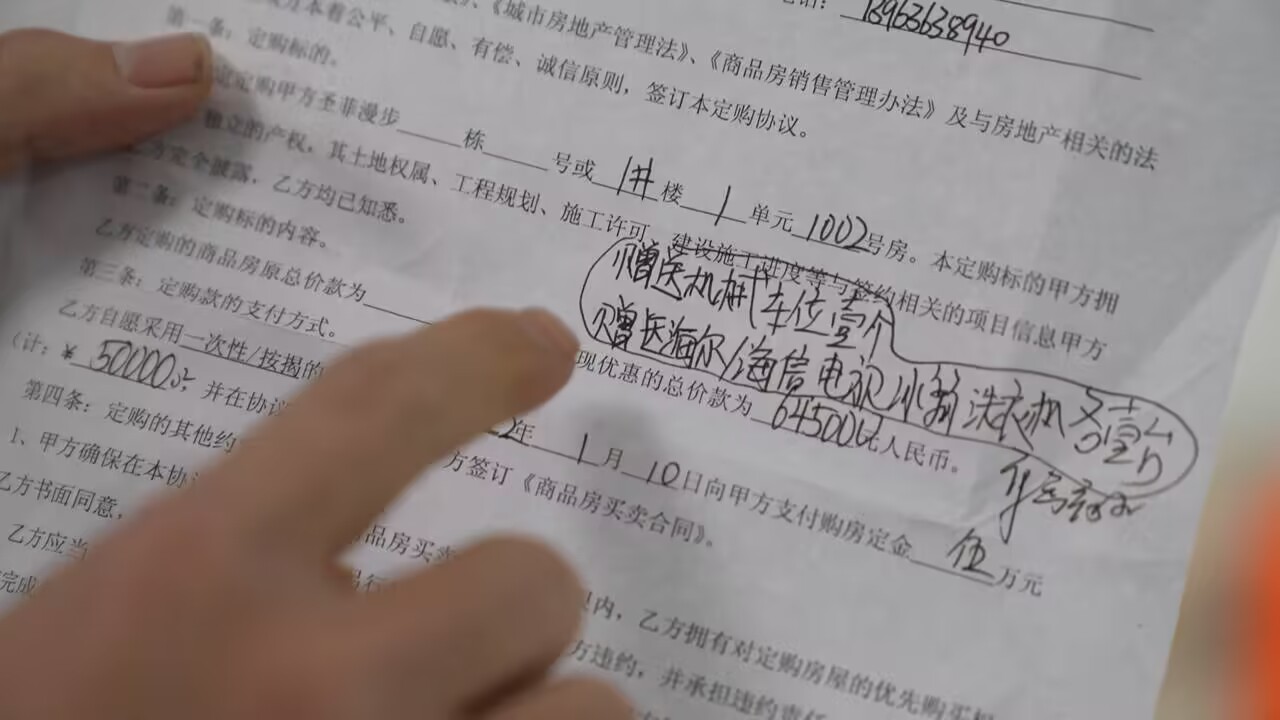 电话：13963638940
《城市房地产管理法》、《商品房销售管理办法》及与房地产相关的法
方本着公平、自愿、有偿、诚信原则，签订本定购协议。
第一条：定购标的。
定购甲方圣菲漫步 栋 号或 1# 楼 1 单元 1002 号房。本定购标的甲方拥
独立的产权，其土地权属、工程规划、施工许可、建设施工进度等与签约相关的项目信息甲方
完全披露，乙方均已知悉。
第二条：定购标的内容。
赠送机械车位壹个
赠送海尔/海信电视冰箱洗衣机各壹台
乙方定购的商品房原总价款为 现优惠的总价款为 645000元人民币。
第三条：定购款的支付方式。
乙方自愿采用一次性/按揭的 2年 1 月 10 日向甲方支付购房定金 伍 万元
（计：￥ 50000元，并在协议 方签订《商品房买卖合同》。
第四条：定购的其他约
1、甲方确保在本协议 内，乙方拥有对定购房屋的优先购买权
乙方书面同意， 品房买卖 方违约，并承担违约责任
乙方应当
完成